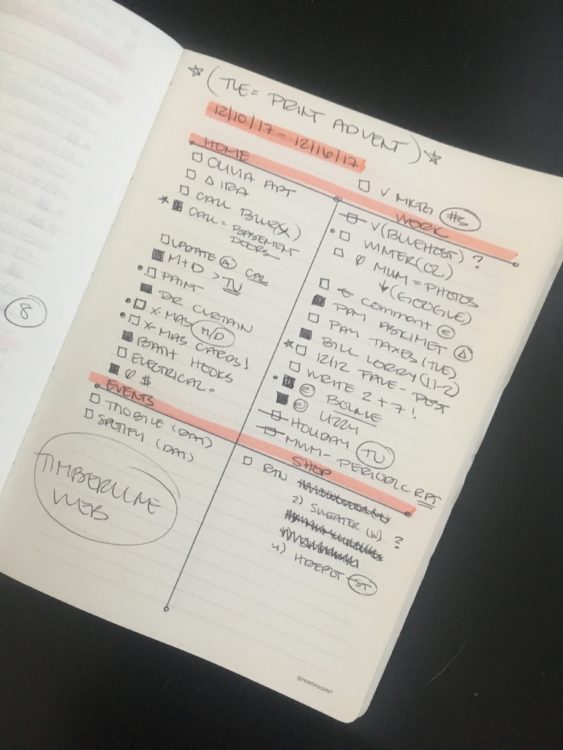 (TLE = PRINT ADVENT)
12/10/17 - 12/16/17
HOME
OLIVIA APT
Δ IRA
CALL
CALL = BASEMENT
DOORS
UPDATE A CAL
M+D > TV
PAINT
DR CURTAIN
X-MAS M/D
X-MAS CARDS!
BATH HOOKS
ELECTRICAL
Ø $
EVENTS
TMOBILE (DAN)
SPOTIFY (DAN)
TIMBERLINE
WEB
8
V MKTG #6
WORK
V (BLUEHOST) ?
WINTER (OL)
Ø MWM = PHOTOS
(GOOGLE)
COMMENT e
PAY ASKIMET
PAY TAXES (TLE) A
BILL LORRY (11-2)
12/12 FAVE - POST
WRITE 2 + 7!
e BOWIE
e LIZZY
HOLIDAY TU
MWM - PERIODIC RPT
SHOP
RTN
2) SWEATER (W)
?
4) HDEPOT ST
greenroom